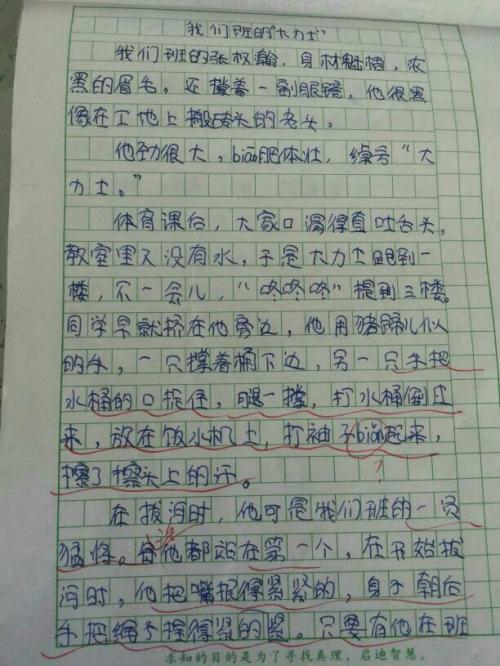 我们班的"大力士"
我们班的张权瀚，身材魁梧，浓
黑的眉毛。还撑着一副眼镜，他很黑
像在工地上搬砖头的老头。
他劲很大，biāo肥体壮，绰号"大
力士。"
体育课后，大家口渴得直吐舌头，
教室里又没有水，于是大力士跑到一
楼，不一会儿，"咚咚咚"提到三楼。
同学早就挤在他旁边，他用猪蹄儿似
的手，一只撑着桶下边，另一只手把
水桶的口抓住，腿一撑，打水桶倒过
来，放在饭水机上，打袖子biān起来，
擦了擦头上的汗。
在拔河时，他可是我们班的一员
猛将。他都站在第一个，在开始拔
河时，他把嘴抿得紧紧的，身子朝后
手把绳子握得紧的紧。只要有他在班
求知的目的是为了寻找真理，启迪智慧。